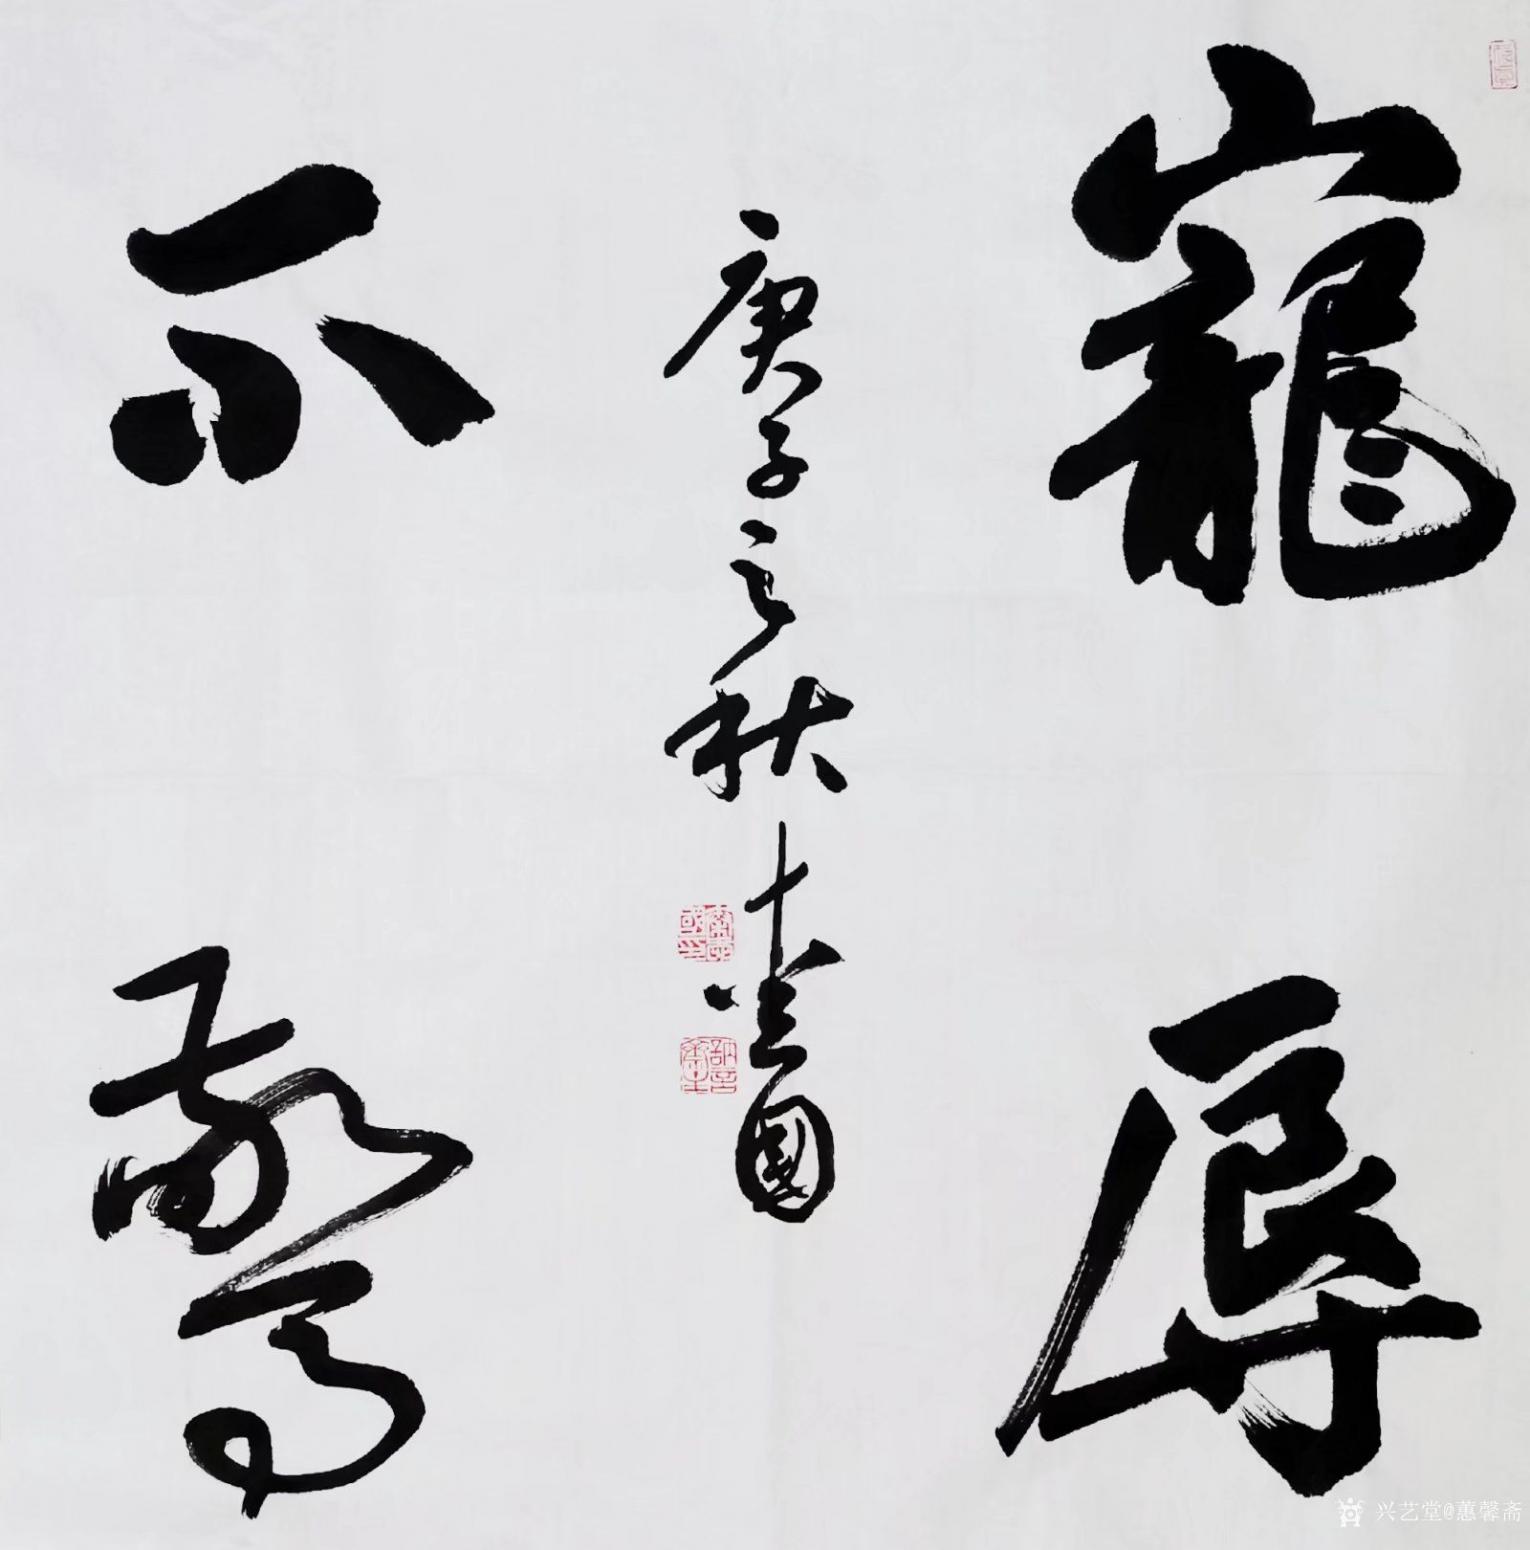 寵辱
庚子之秋 志國
不驚
兴艺堂@蕙馨斋